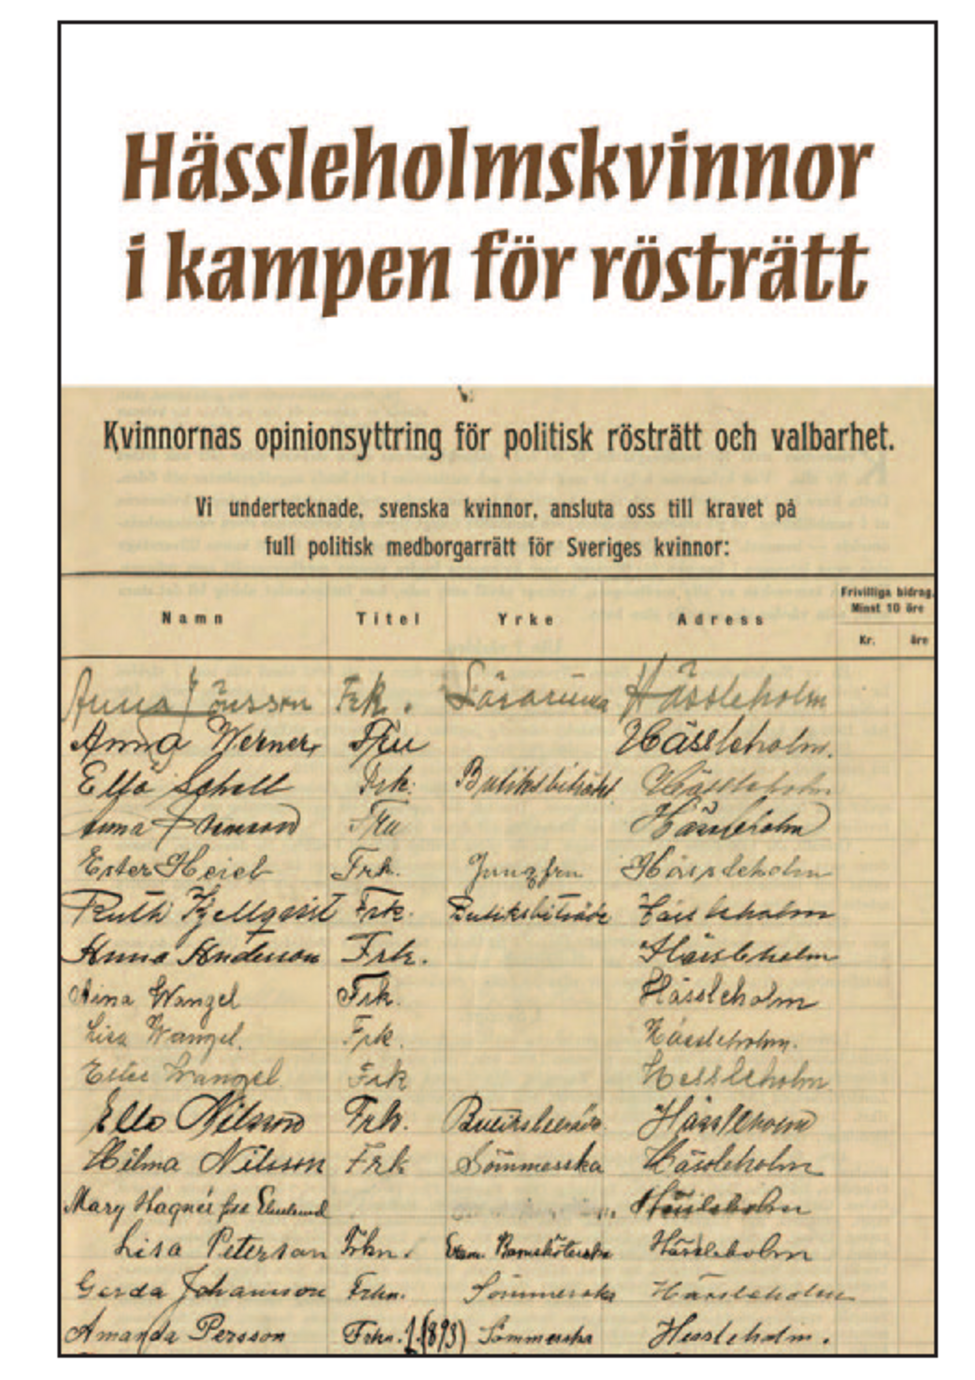 Hässleholmskvinnor
i kampen för rösträtt
Kvinnornas opinionsyttring för politisk rösträtt och valbarhet.
Vi undertecknade, svenska kvinnor, ansluta oss till kravet på
full politisk medborgarrätt för Sveriges kvinnor:
Frivilliga bidrag.
Namn Titel Yrke Adress Minst 10 öre
Kr. öre
Anna Jönsson Frk. Lärarinna Hässleholm
Anna Werner Fru Hässleholm.
Ella Schell Frk. Butiksbiträde Hässleholm
Anna Fru Hässleholm
Ester Heieb Frk. Jungfru Hässleholm
Ruth Kjellqvist Frk. Butiksbiträde Hässleholm
Anna Andersson Frk. Hässleholm
Aina Wangel Frk. Hässleholm
Lisa Wangel. Frk. Hässleholm.
Ester Wangel Frk Hessleholm
Ella Nilsson Frk. Butiksbiträde Hässleholm
Hilma Nilsson Frk Sömmerska Hässleholm
Mary Hagner Hässleholm
Lisa Peterson Frkn. Exam. Barnsköterska Hässleholm
Gerda Johansson Frkn. Sömmerska Hässleholm
Amanda Persson Frkn. f. (893) Sömmerska Hessleholm.